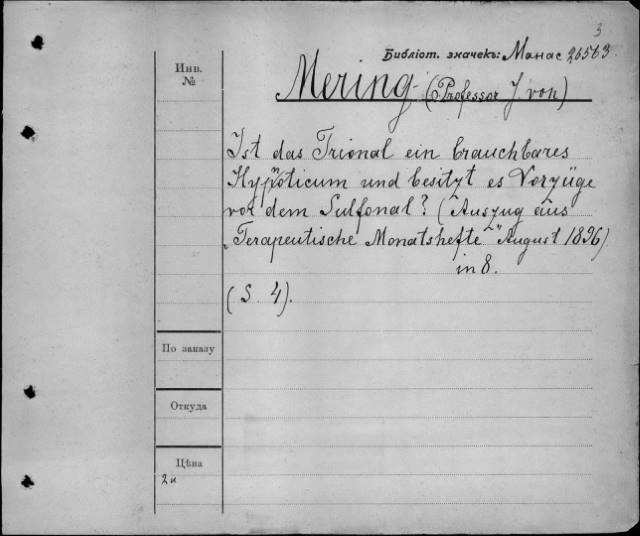 3
Библіот. значекъ: Манас 26563.
Инв.
№
Mering (Professor J. von)
Ist das Trional ein brauchbares
Hypnoticum und besitzt es Vorzüge
vor dem Sulfonal? (Auszug aus
„Terapeutische Monatshefte" August 1896)
in 8.
(S. 4).
По заказу
Откуда
Цѣна